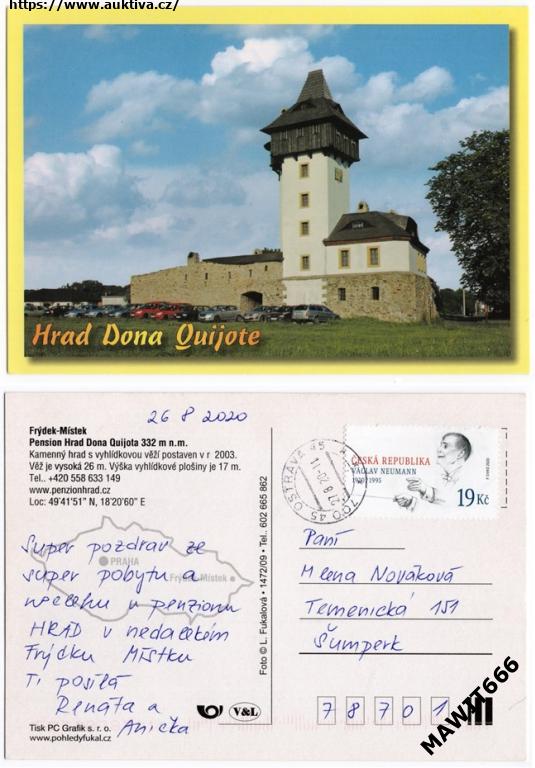 https://www.auktiva.cz/
Hrad Dona Quijote
26 8 2020
Frýdek-Místek
Pension Hrad Dona Quijota 332 m n.m.
Kamenný hrad s vyhlídkovou věží postaven v r 2003.
Věž je vysoká 26 m. Výška vyhlídkové plošiny je 17 m.
Tel.. +420 558 633 149
www.penzionhrad.cz
Loc: 49'41'51" N, 18'20'60" E
PRAHA
Frýdek-Místek
Super pozdrav ze
super pobytu a
noclehu v penzionu
HRAD v nedalekém
Frýdku Místku
Ti posílá
Renáta a
Anička
Tisk PC Grafik s. r. o.
www.pohledyfukal.cz
V&L
Foto © L. Fukalová • 1472/09 • Tel.. 602 665 862
700 45 OSTRAVA 45
ČESKÁ REPUBLIKA
VÁCLAV NEUMANN
1920 1995
19 Kč
Paní
Mlena Nováková
Temenická 151
Šumperk
78701
MAWJT666